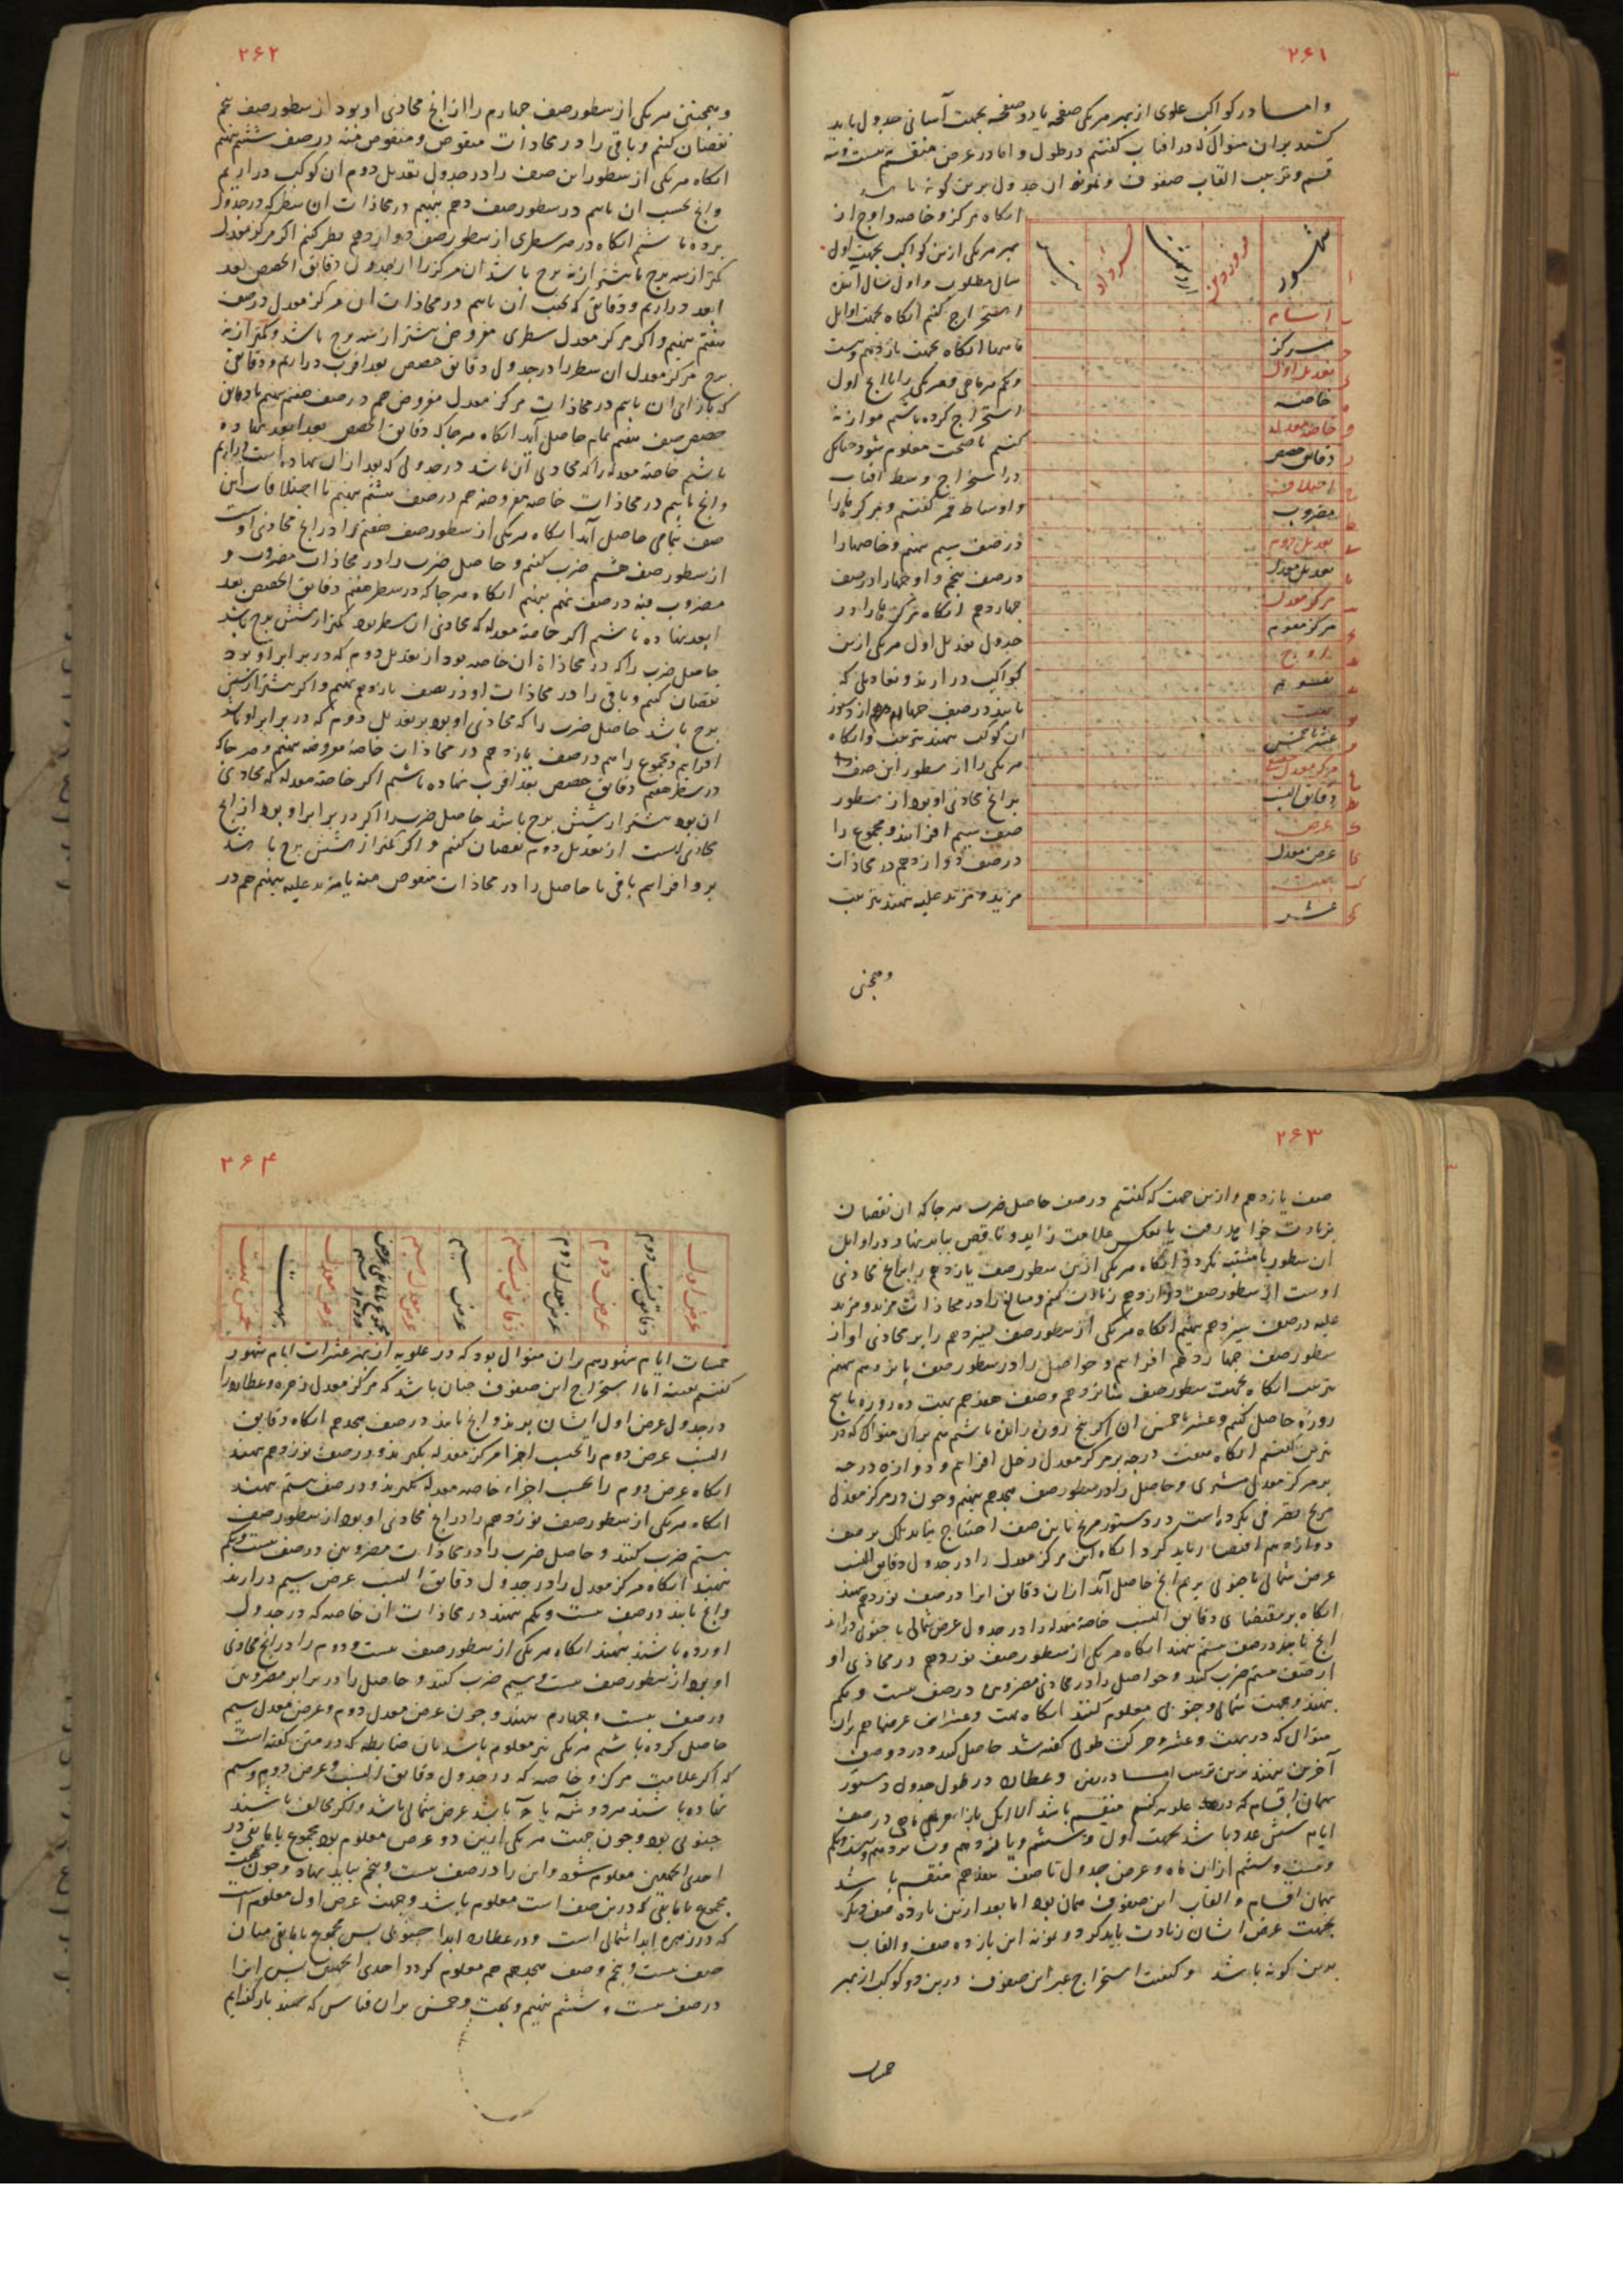 ۲۶۱
واما در کواکب علوی از بهر هر یکی صفحه یا دو صفحه بجهت آسانی جدول باید
کشید بران منوال که در افتاب کفتیم در طول و اما در عرض منقسم به بیست و سه
قسم و ترتیب القاب صفوف و نمونه ان جدول برین کونه باشد
شهور
فروردین
خرداد
ایام
مرکز
تعدیل اول
خاصه
خاصه معدله
دقایق حصص
اختلاف
مضروب
تعدیل دوم
تعدیل معدل
مرکز معدل
مرکز مقوم
اوج
تقویم
بهت
عشر یا خمس
مرکز معدل
دقایق النسب
عرض
عرض معدل
بهت
عشر
انکاه مرکز و خاصه و اوج از
بهر هر یکی ازین کواکب بجهت اول
سال مطلوب و اول سال آینده
استخراج کنیم انکاه بجهت اوایل
ماهها انکاه بجهت یازدهم و بیست
ویکم هر ماهی و هر یکی را با انچ اول
استخراج کرده باشیم موازنه
کنیم تا صحت معلوم شود چنانک
در استخراج وسط افتاب
و اوساط قمر کفتیم و مرکزها را
در صف سیم نهیم و خاصها را
در صف پنجم و اوجها را در صف
چهاردهم انکاه مرکزها را در
جدول تعدیل اول هر یکی ازین
کواکب درارند و تعادیلی که
یابند در صف چهارم از دستور
ان کوکب نهند بترتیب و انکاه
هر یکی را از سطور این صف
بر انچ محاذی او بود از سطور
صف سیم افزایند و مجموع را
در صف دوازدهم در محاذات
مزید و مزید علیه نهند بترتیب
وهمچنی
۲۶۲
وهمچنین هر یکی از سطور صف چهارم را از انچ محاذی او بود از سطور صف پنجم
نقصان کنیم و باقی را در محاذات منقوص و منقوص منه در صف ششم نهیم
انکاه هر یکی از سطور این صف را در جدول تعدیل دوم ان کوکب دراریم
وانچ بحسب ان یابیم در سطور صف دهم نهیم در محاذات ان سطر که در جدول
برده باشیم انکاه در هر سطری از سطور صف دوازدهم نظر کنیم اکر مرکز معدل
کمتر از سه برج یا بیشتر از نه برج باشد ان مرکز را در جدول دقایق الحصص بعد
ابعد دراریم و دقایقی که بحسب ان یابیم در محاذات ان مرکز معدل در صف
هفتم نهیم و اکر مرکز معدل سطری مفروض بیشتر از سه برج باشد و کمتر از نه
برج مرکز معدل ان سطر را در جدول دقایق حصص بعد اقرب دراریم و دقایقی
که بازای ان یابیم در محاذات مرکز معدل مفروض هم در صف هفتم نهیم تا دقایق
حصص صف هفتم تمام حاصل آید انکاه هر جا که دقایق الحصص بعد ابعد نهاده
باشیم خاصه معدله را که محاذی آن باشد در جدولی که بعد ازان نهاده است دراریم
وانچ یابیم در محاذات خاصه مفروضه هم در صف هشتم نهیم تا اختلافات این
صف بتمامی حاصل آید انکاه هر یکی از سطور صف هفتم را در انچ محاذی او است
از سطور صف هشتم ضرب کنیم و حاصل ضرب را در محاذات مضروب و
مضروب فیه در صف نهم نهیم انکاه هر جا که در سطر هفتم دقایق الحصص بعد
ابعد نهاده باشیم اکر خاصه معدله که محاذی ان سطر بود کمتر از شش برج باشد
حاصل ضرب را که در محاذاة ان خاصه بود از تعدیل دوم که در برابر او بود
نقصان کنیم و باقی را در محاذات او در صف یازدهم نهیم و اکر بیشتر از شش
برج باشد حاصل ضرب را که محاذی او بود بر تعدیل دوم که در برابر او باشد
افزاییم و مجموع را هم در صف یازدهم در محاذات خاصه مفروضه نهیم و هر جا که
در سطر هفتم دقایق حصص بعد اقرب نهاده باشیم اکر خاصه معدله که محاذی
ان بود بیشتر از شش برج باشد حاصل ضرب را اکر در برابر او بود از انچ
محاذی است از تعدیل دوم نقصان کنیم و اکر کمتر از شش برج باشد
برو افزاییم باقی یا حاصل را در محاذات منقوص منه یا مزید علیه نهیم هم در
۲۶۳
صف یازدهم و ازین جهت که کفتیم در صف حاصل ضرب هر جا که ان نقصان
بزیادت خواهد رفت یا بعکس علامت زاید و ناقص بباید نهاد در اوایل
ان سطور تا مشتبه نکردد انکاه هر یکی ازین سطور صف یازدهم را بر انچ محاذی
اوست از سطور صف دوازدهم زیادت کنیم و مبالغ را در محاذات مزید و مزید
علیه در صف سیزدهم نهیم انکاه هر یکی از سطور صف سیزدهم را بر محاذی او از
سطور صف چهاردهم افزاییم و حواصل را در سطور صف پانزدهم نهیم
بترتیب انکاه بجهت سطور صف شانزدهم و صف هفدهم بهت ده روزه یا پنج
روزه حاصل کنیم و عشر یا خمس ان اکر پنج روزه رانده باشیم هم بران منوال که در
نیرین کفتیم انکاه هفت درجه بر مرکز معدل زحل افزاییم و دوازده درجه
بر مرکز معدل مشتری و حاصل را در سطور صف هجدهم نهیم و چون در مرکز معدل
مریخ تصرفی نکرده است در دستور مریخ باین صف احتیاج نباید بلک بر صف
دوازدهم اقتصار باید کرد انکاه این مرکز معدل را در جدول دقایق النسب
عرض شمالی یا جنوبی بریم انچ حاصل آید از ان دقایق انرا در صف نوزدهم نهند
انکاه بر مقتضای دقایق النسب خاصه معدله را در جدول عرض شمالی یا جنوبی درارند
انچ یابند در صف بیستم نهند انکاه هر یکی از سطور صف نوزدهم در محاذی او
از صف بیستم ضرب کنند و حواصل را در محاذی مضروبین در صف بیست ویکم
نهند و جهت شمالی و جنوبی معلوم کنند انکاه بهت و عشر این عرضها هم بران
منوال که در بهت و عشر حرکت طولی کفته شد حاصل کنند و در دو صف
آخرین نهند برین ترتیب اما در زهره و عطارد در طول جدول دستور
بهمان اقسام که در علویه کفتیم منقسم باشد الا انک بازاء هر ماهی در صف
ایام شش عدد باشد بجهت اول و ششم و یازدهم و شانزدهم و بیست ویکم
و بیست و ششم از ان ماه و عرض جدول تا صف هفدهم منقسم باشد
بهمان اقسام و القاب این صفوف همان بود اما بعد ازین یازده صف دیکر
بجهت عرض ایشان زیادت باید کرد و نمونه این یازده صف و القاب
بدین کونه باشد و کیفیت استخراج غیر این صفوف درین دو کوکب از بهر
۲۶۴
عرض اول
دقایق نسب دوم
عرض دوم
عرض معدل دوم
دقایق نسب سیم
عرض سیم
عرض معدل سیم
عرض معدل
بهت
خمس بهت
خمسات ایام شهور هم بران منوال بود که در علویه از بهر عشرات ایام شهور
کفتیم بعینه اما استخراج این صفوف چنان باشد که مرکز معدل زهره و عطارد را
در جدول عرض اول ایشان برند و انچ یابند در صف هجدهم انکاه دقایق
النسب عرض دوم را بحسب اجزا مرکز معدله بکیرند و در صف نوزدهم نهند
انکاه عرض دوم را بحسب اجزاء خاصه معدله بکیرند و در صف بیستم نهند
انکاه هر یکی از سطور صف نوزدهم را در انچ محاذی او بود از سطور صف
بیستم ضرب کنند و حاصل ضرب را در محاذات مضروبین در صف بیست ویکم
نهند انکاه مرکز معدل را در جدول دقایق النسب عرض سیم درارند
وانچ یابند در صف بیست ویکم نهند در محاذات ان خاصه که در جدول
اورده باشند نهند انکاه هر یکی از سطور صف بیست و دوم را در انچ محاذی
او بود از سطور صف بیست و سیم ضرب کنند و حاصل را در برابر مضروبین
در صف بیست و چهارم نهند و چون عرض معدل دوم و عرض معدل سیم
حاصل کرده باشیم هر یکی نیز معلوم باشد بان ضابطه که در متن کفته است
که اکر علامت مرکز و خاصه که در جدول دقایق النسب و عرض دوم و سیم
نهاده باشند هر دو باشد عرض شمالی باشد و اکر مخالف باشند
جنوبی بود و چون جهت هر یکی ازین دو عرض معلوم بود مجموع یا باقی در
احدی الجهتین معلوم شود و این را در صف بیست و پنجم بباید نهاد و چون جهت
مجموع یا باقی که درین صف است معلوم باشد و جهت عرض اول معلوم است
که در زهره ابدا شمالی است و در عطارد ابدا جنوبی پس مجموع یا باقی میان
صف بیست و پنجم و صف هجدهم هم معلوم کردد احدی الجهتین پس انرا
در صف بیست و ششم نهیم و بهت و خمس بران قیاس که نمودیم